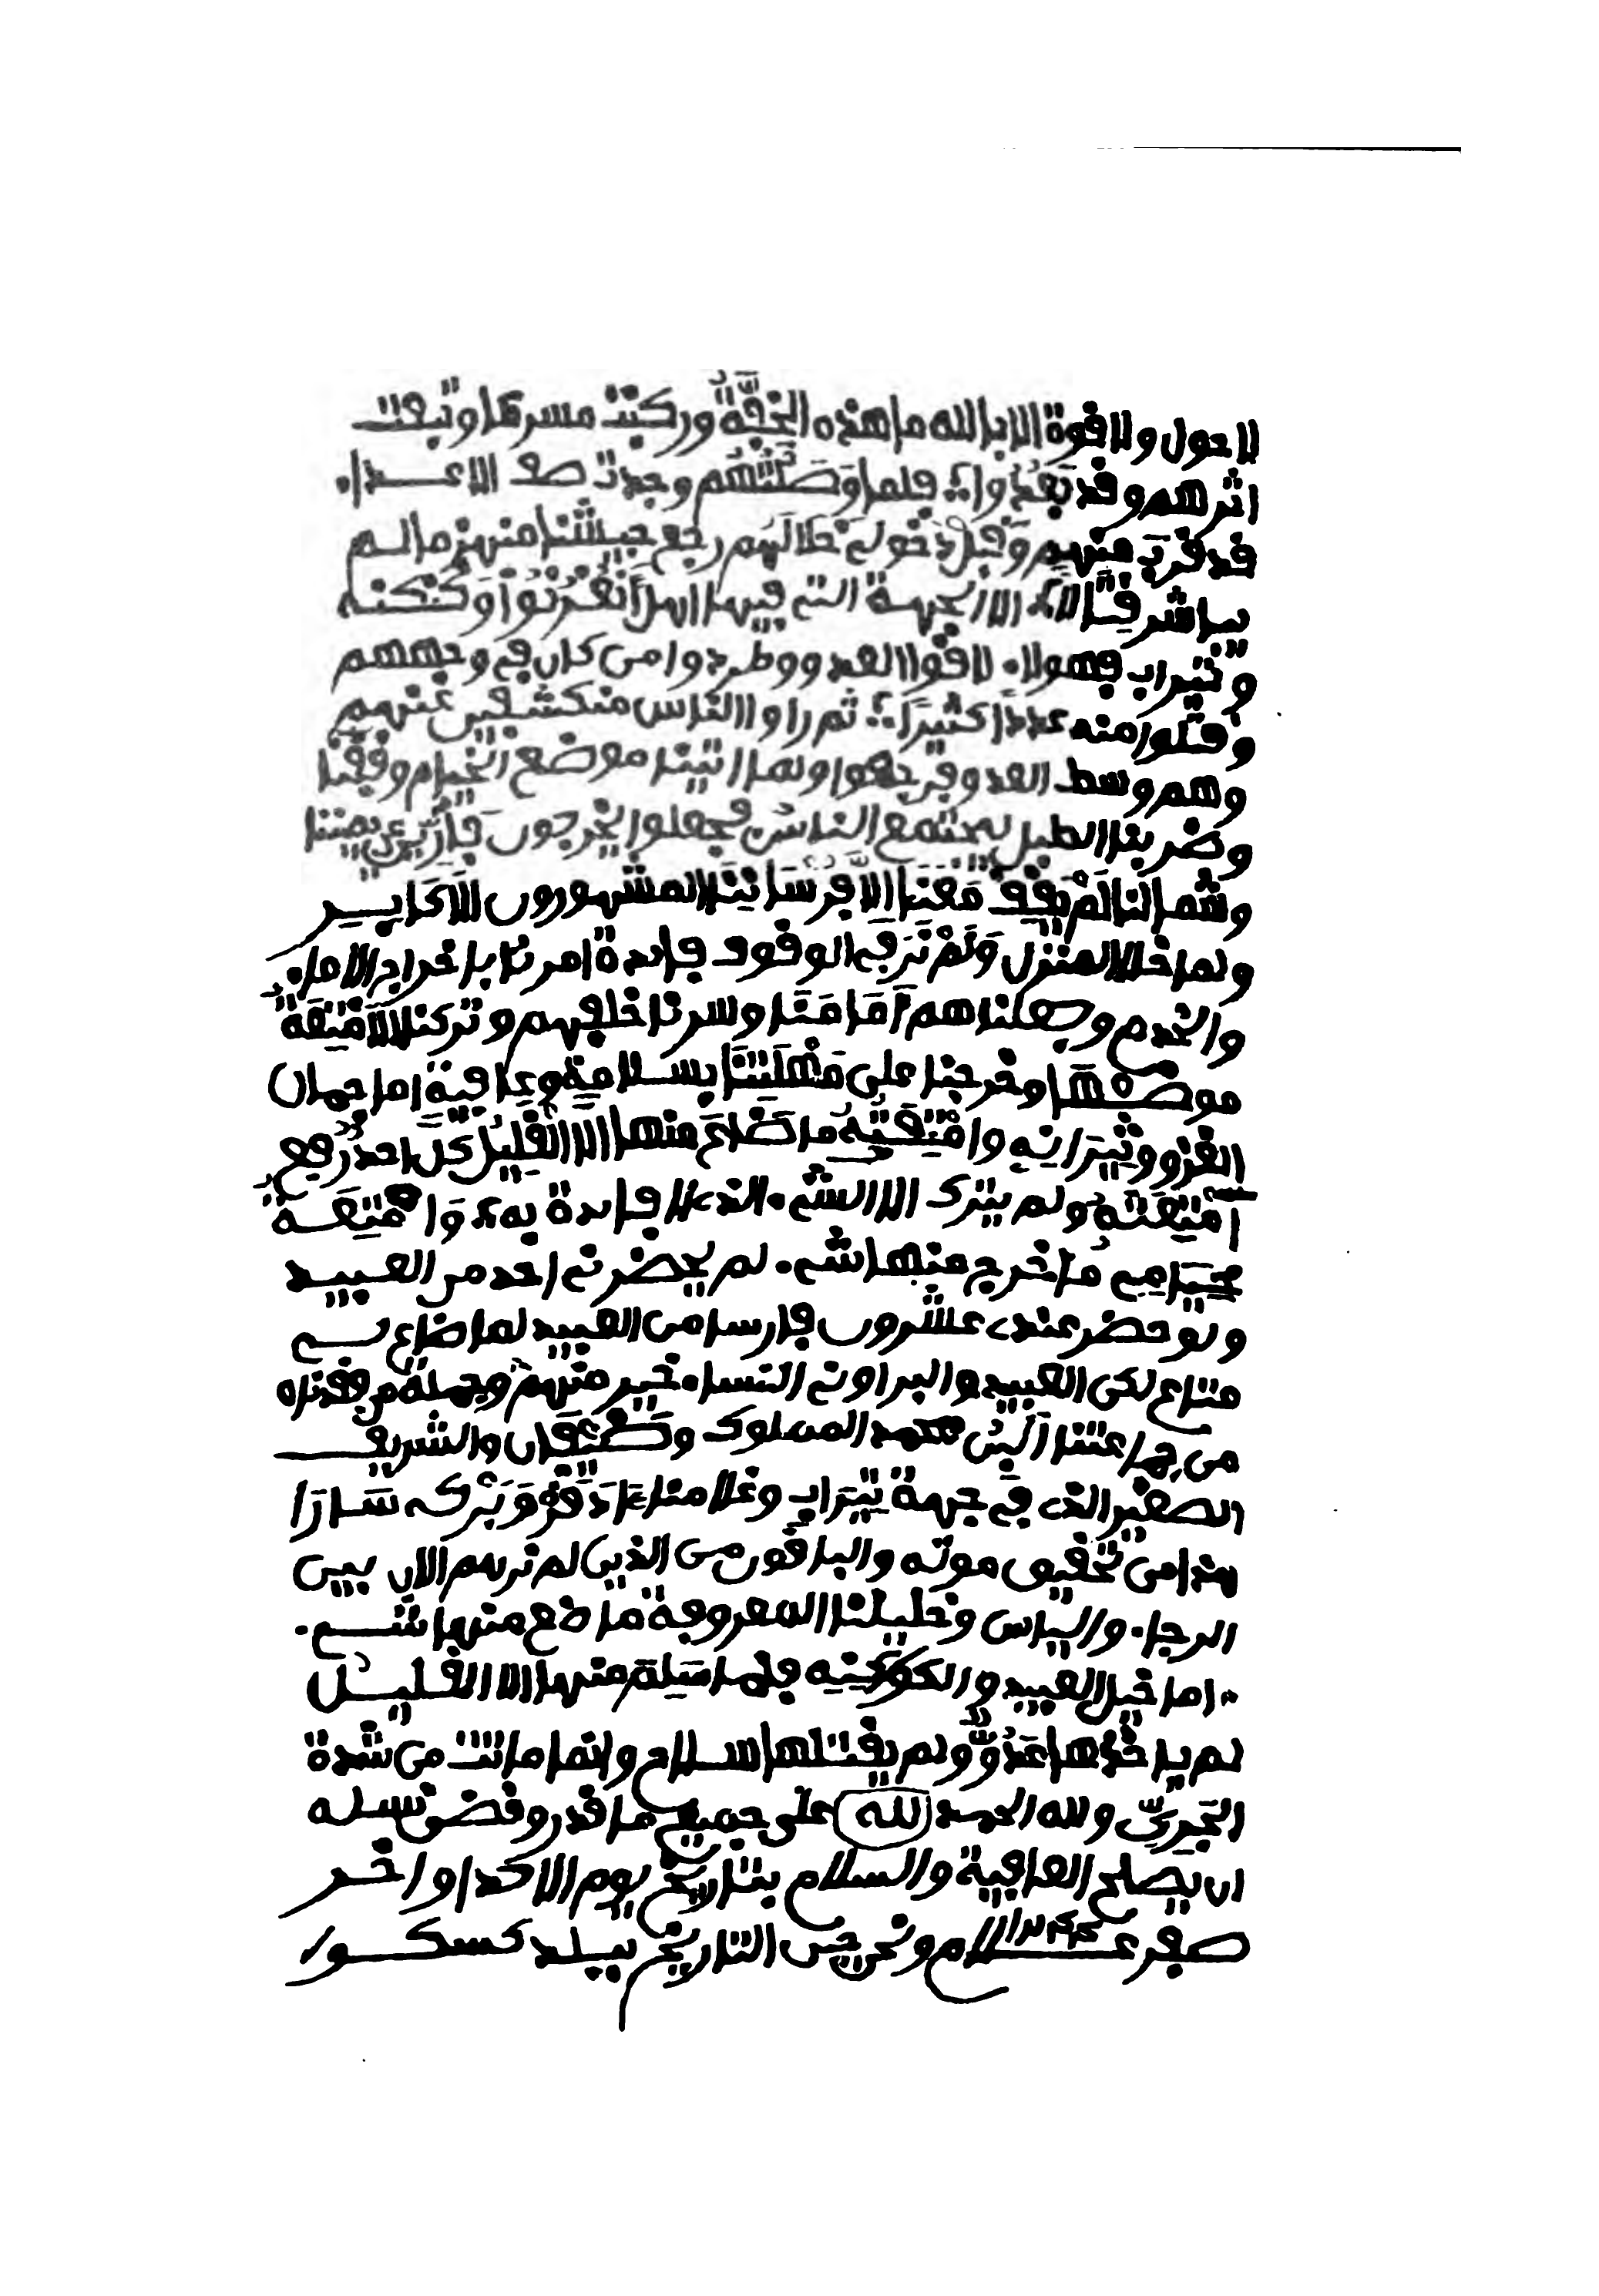 لا حول ولا قوة الا بالله ما هذه الخفة وركبت مسرعا وتبعت
اثرهم وقد بعدوا فلما وصلتهم وجدت صف الاعداء
قد قرب منهم وقبل دخولي خلالهم رجع جيشنا منهزما لم
يباشر قتالا الا الجهة التي فيها اهل
وتيراب فهولاء لاقوا العدو وطردوا من كان في وجههم
وقتلوا منه عددا كثيرا ثم راوا الناس منكشفين عنهم
وهم وسط العدو ولما اتينا موضع الخيام وقفنا
وضربنا الطبل ليجتمع الناس فجعلوا يخرجون فارين عن يميننا
وشمالنا لم يقف معنا الا فرساننا المشهورون الاكابر
ولما خلا المنزل ولم نر في الوقوف فايدة امرنا باخراج الاماء
والخدم وجعلناهم امامنا وسرنا خلفهم وتركنا الامتعة
موضعها وخرجنا على مهلتنا بسلامة وعافية اما جمال
الغزو وثيرانه وامتعته ما ضاع منها الا القليل كل احد رفع
امتعته ولم يترك الا الشيء الذي لا فايدة به وامتعة
خيامي ما خرج منها شيء لم يحضرني احد من العبيد
ولو حضر عندي عشرون فارسا من العبيد لما ضاع لي
متاع لكن العبيد والبراوني النساء خير منهم وجملة من فقدناه
من جماعتنا محمد المملوك والشريف
الصغير الذي في جهة تيراب وغلامنا سارا
هذا من تحقيق موته والباقون من الذين لم نرهم الان بين
الرجاء والياس وخيلنا المعروفة ما ضاع منها شيء
اما خيل العبيد فما سلم منها الا القليل
لم ياخذها عدو ولم يقتلها سلاح وانما ماتت من شدة
الجري ولله الحمد لله على جميع ما قدر وقضى نسله
ان يصلح العافية والسلام بتاريخ يوم الاحد اواخر
صفر عام ونحن حين التاريخ ببلد كسكوا